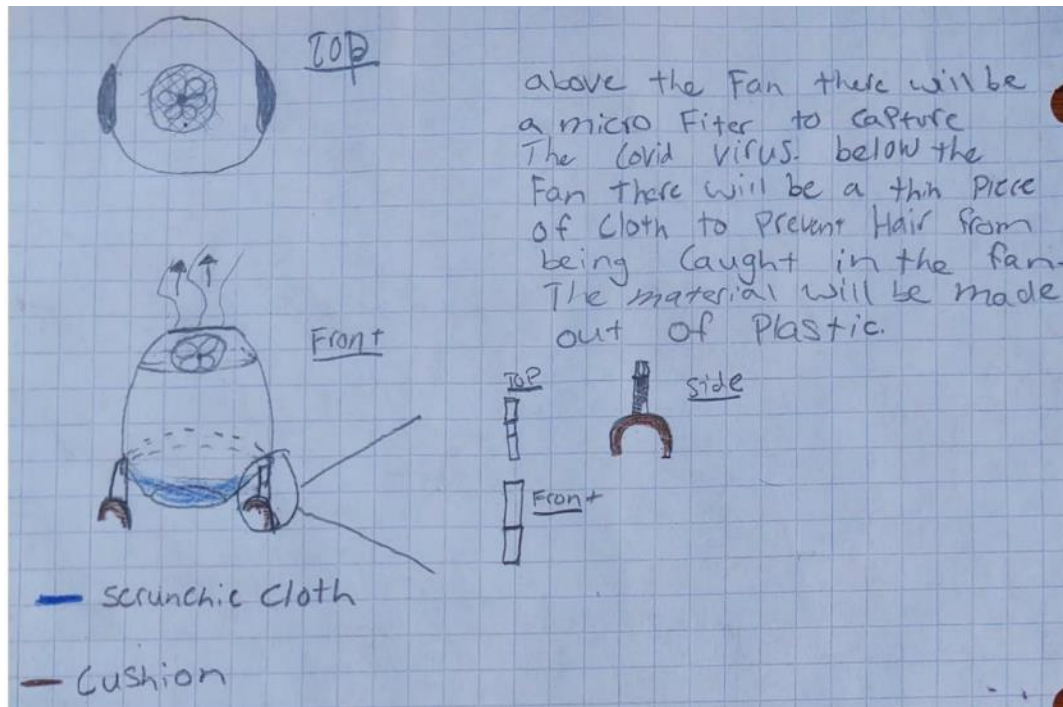 TOP
above the Fan there will be
a micro Fiter to capture
The Covid virus. below the
Fan there will be a thin Piece
of Cloth to Prevent Hair from
being Caught in the fan.
The material will be made
out of Plastic.
Front
TOP
Side
Front
scrunchie cloth
Cushion